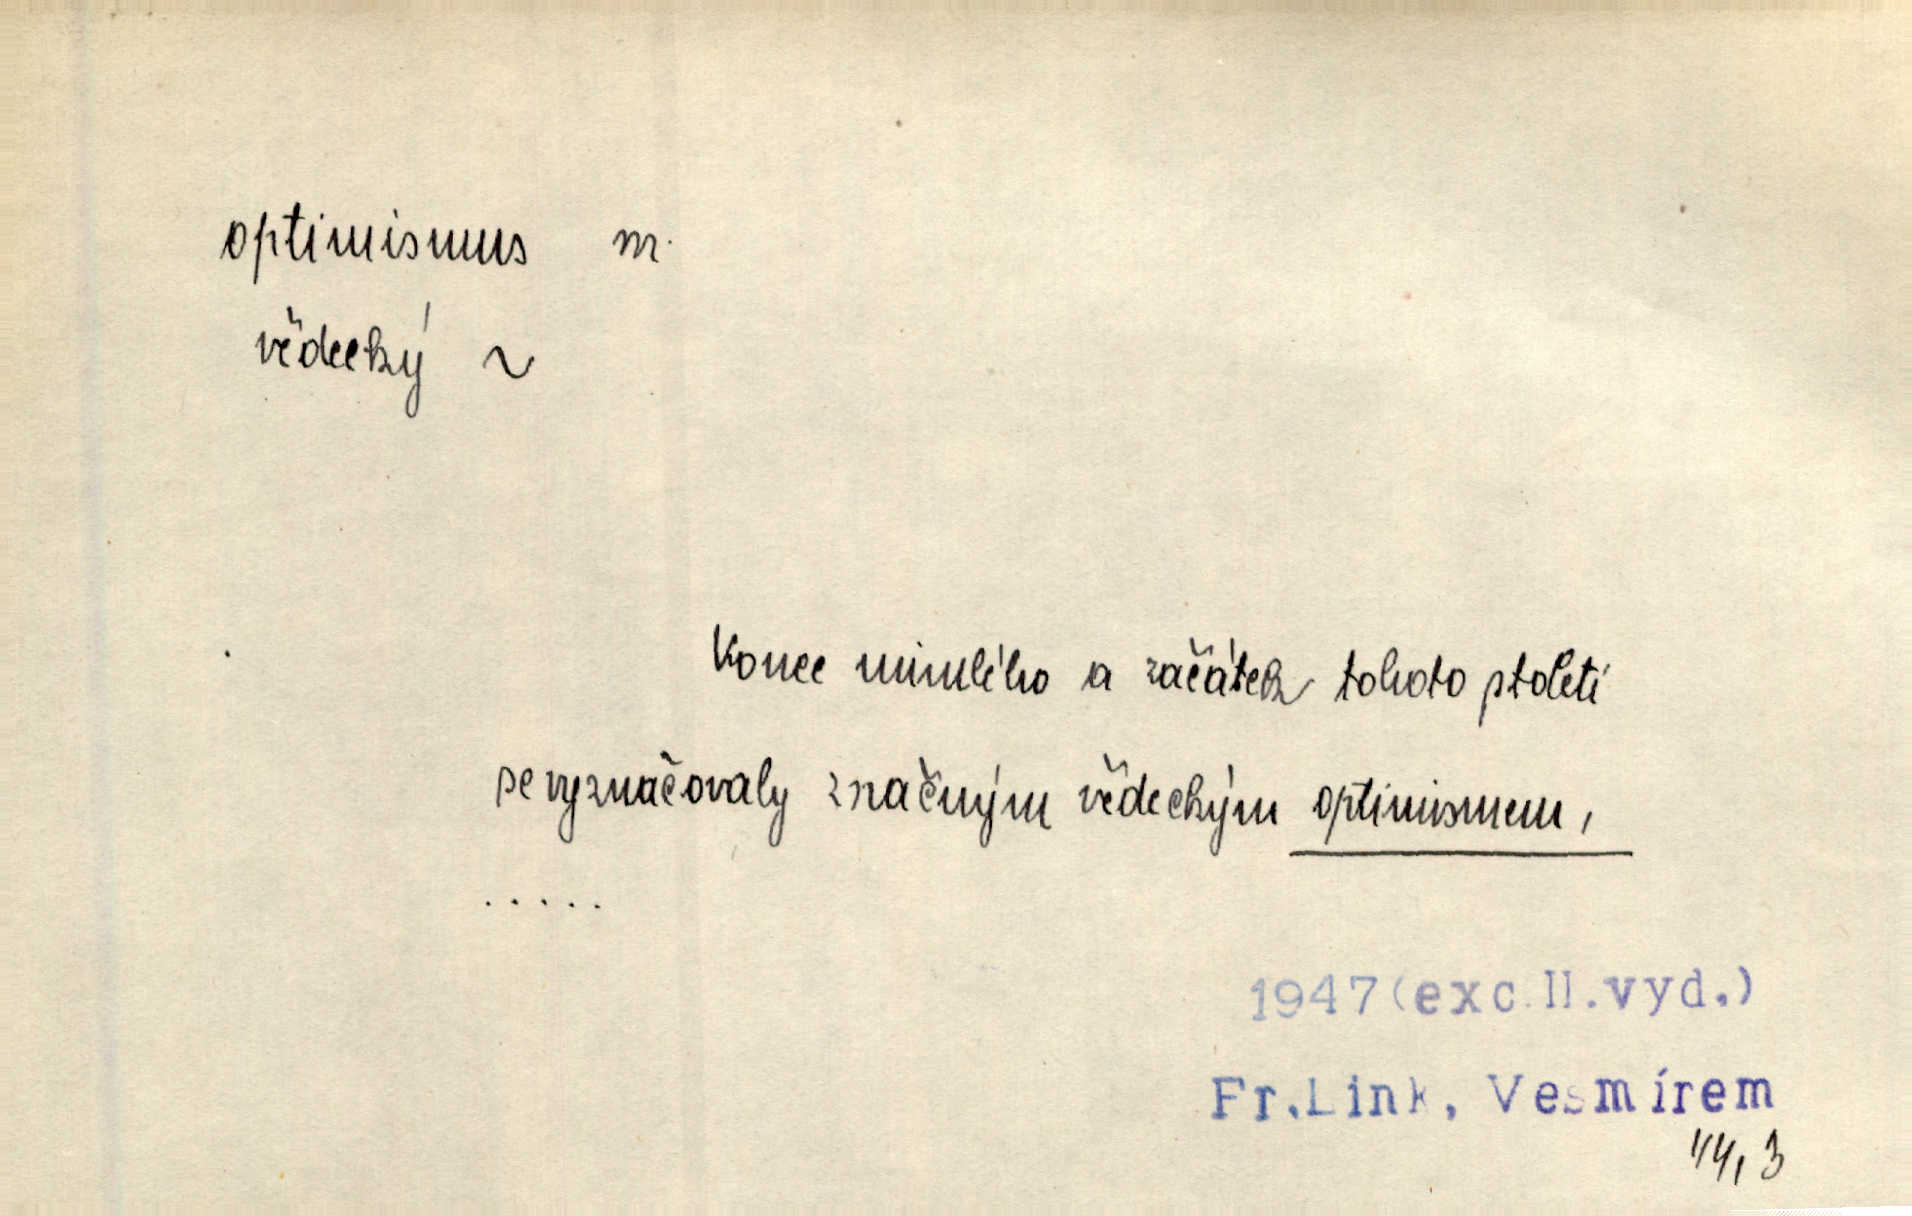 optimismus m.
vědecký ~
Konec minulého a začátek tohoto století
se vyznačovaly značným vědeckým optimismem,
.....
1947(exc.II.vyd.)
Fr.Link, Vesmírem
44,3